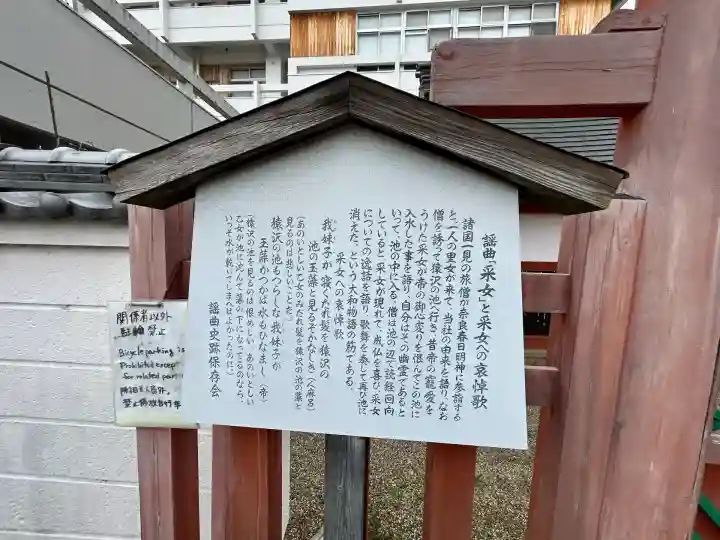 謡曲「采女」と采女への哀悼歌
諸国一見の旅僧が奈良春日明神に参詣する
と、一人の里女が来て、当社の由来を語り、なお
僧を誘って猿沢の池へ行き、昔帝の寵愛を
うけた采女が帝の御心変りを恨んでこの池に
入水した事を語り、自分はその幽霊であると
いって、池の中に入る。僧は池の辺で読経、回向
していると、采女が現れて、成仏を喜び、采女
についての逸話を語り、歌舞を奏して再び池に
消えた。という大和物語の筋である。
采女への哀悼歌
我妹子が寝くたれ髪を猿沢の
池の玉藻と見るぞかなしき(人麻呂)
(あのいとしい乙女のみだれ髪を猿沢の池の藻と
見るのは悲しいことだ。)
猿沢の池もつらしな我妹子が
玉藻かつかば水もひなまし (帝)
(猿沢の池を見るのは恨めしい。あのいとしい
乙女が池に沈んで藻の下になっているのなら、
いっそ水が乾いてしまえばよかったのに。)
謡曲史跡保存会
関係者以外
駐輪禁止
Bicycle parking is
Prohibited except
for related